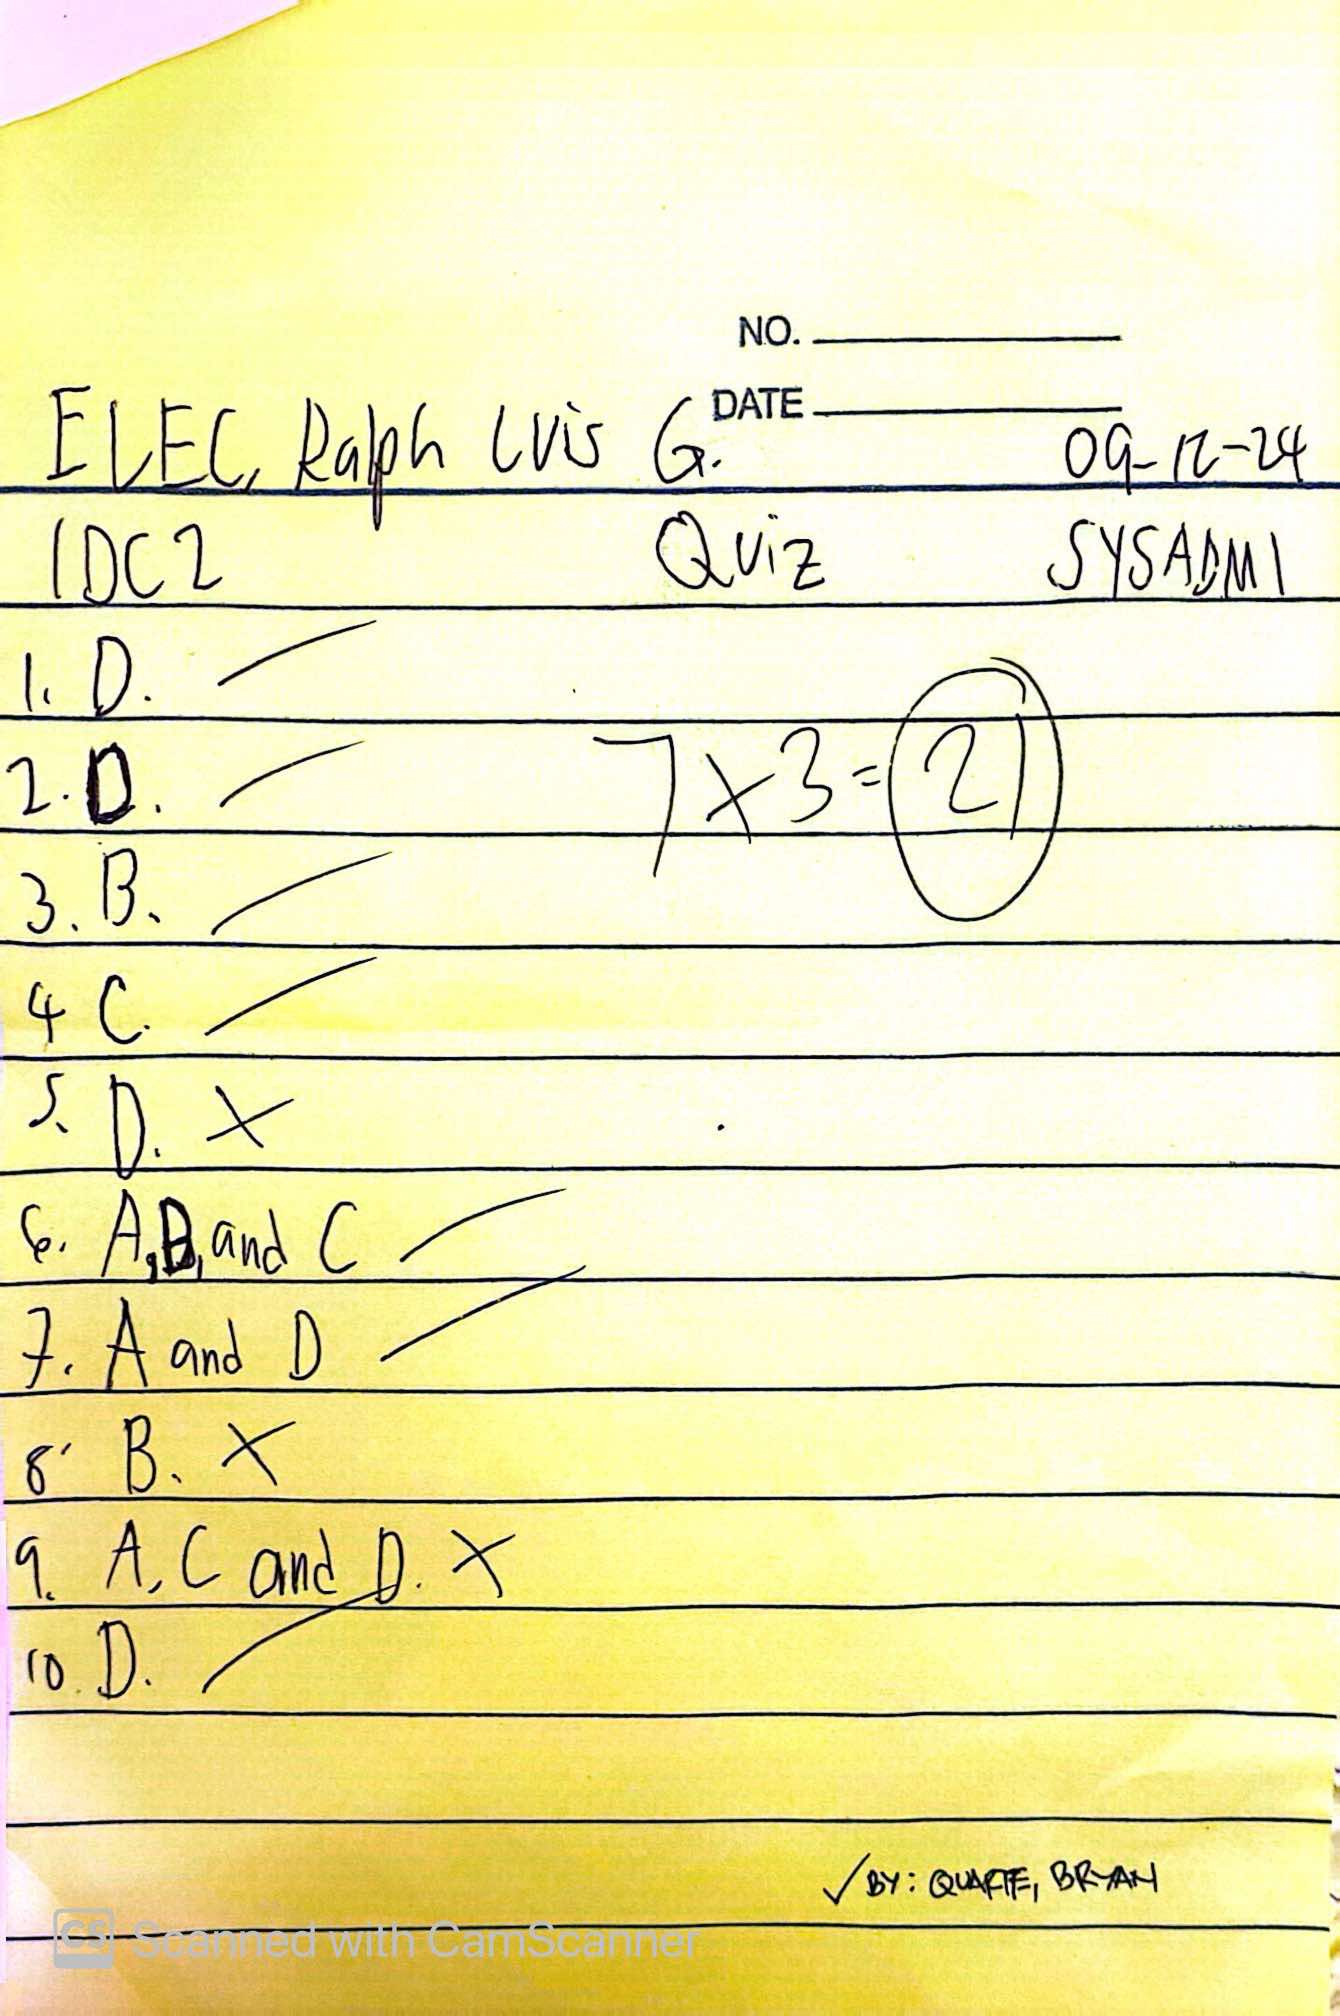 NO.
DATE
ELEC, Ralph Luis G. 09-12-24
1DC2 Quiz SYSADM1
1. D.
7x3=21
2. D.
3. B.
4 C.
5. D. X
6. A,B, and C
7. A and D
8. B. X
9. A, C and D. X
10. D.
✓ BY: QUARTE, BRYAN
CS Scanned with CamScanner